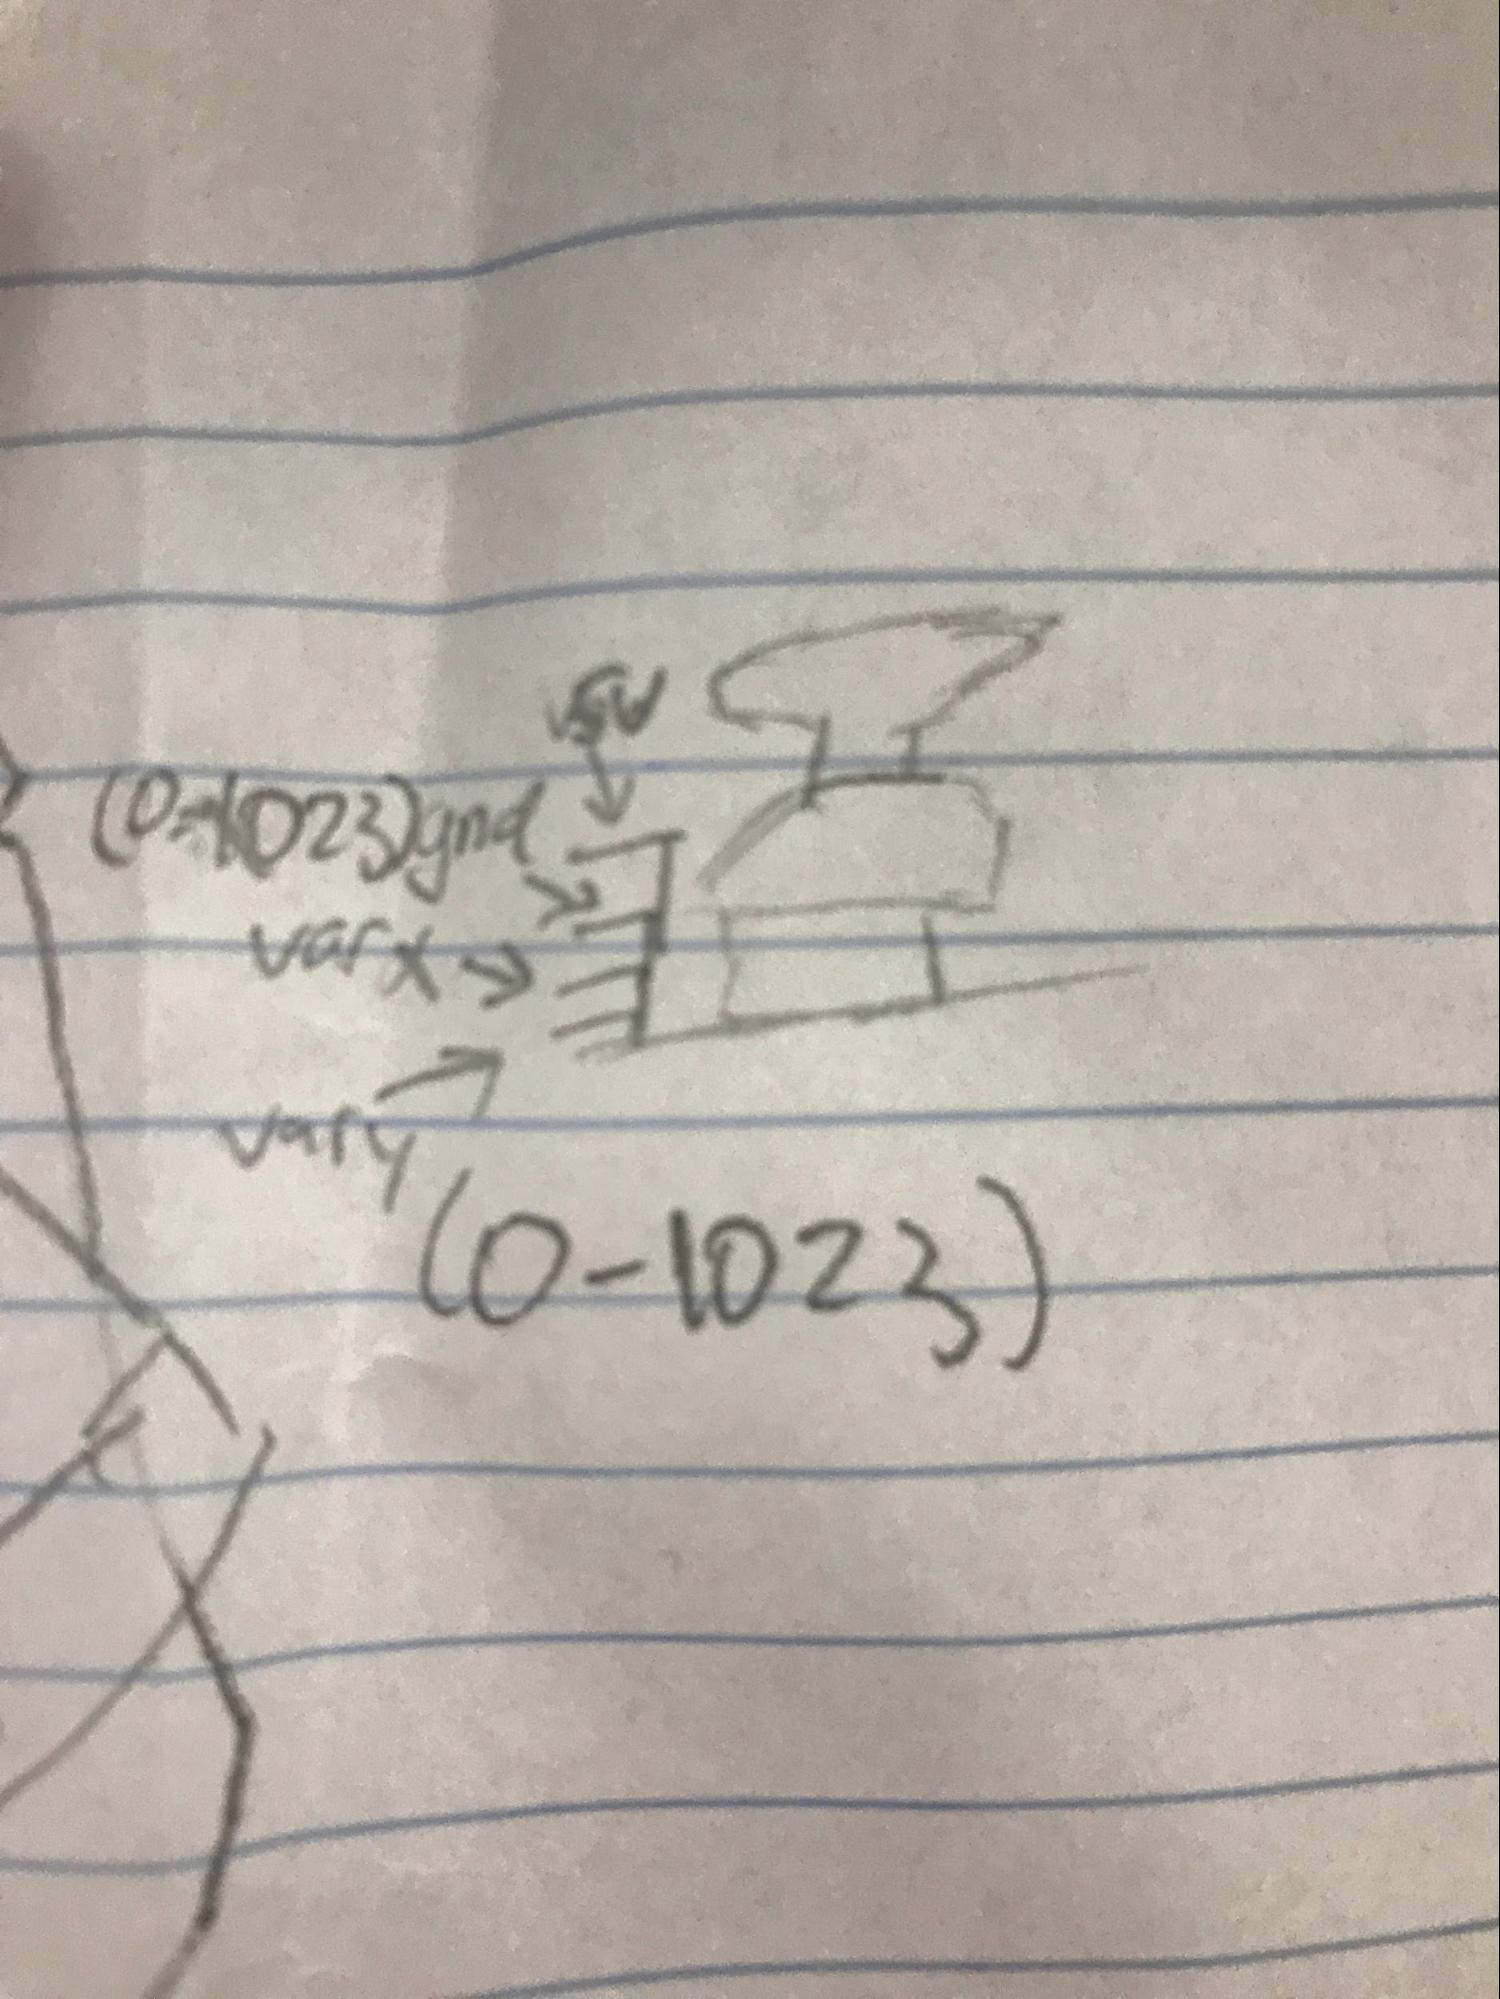 5V
(0-1023) gnd
var x
var y
(0-1023)